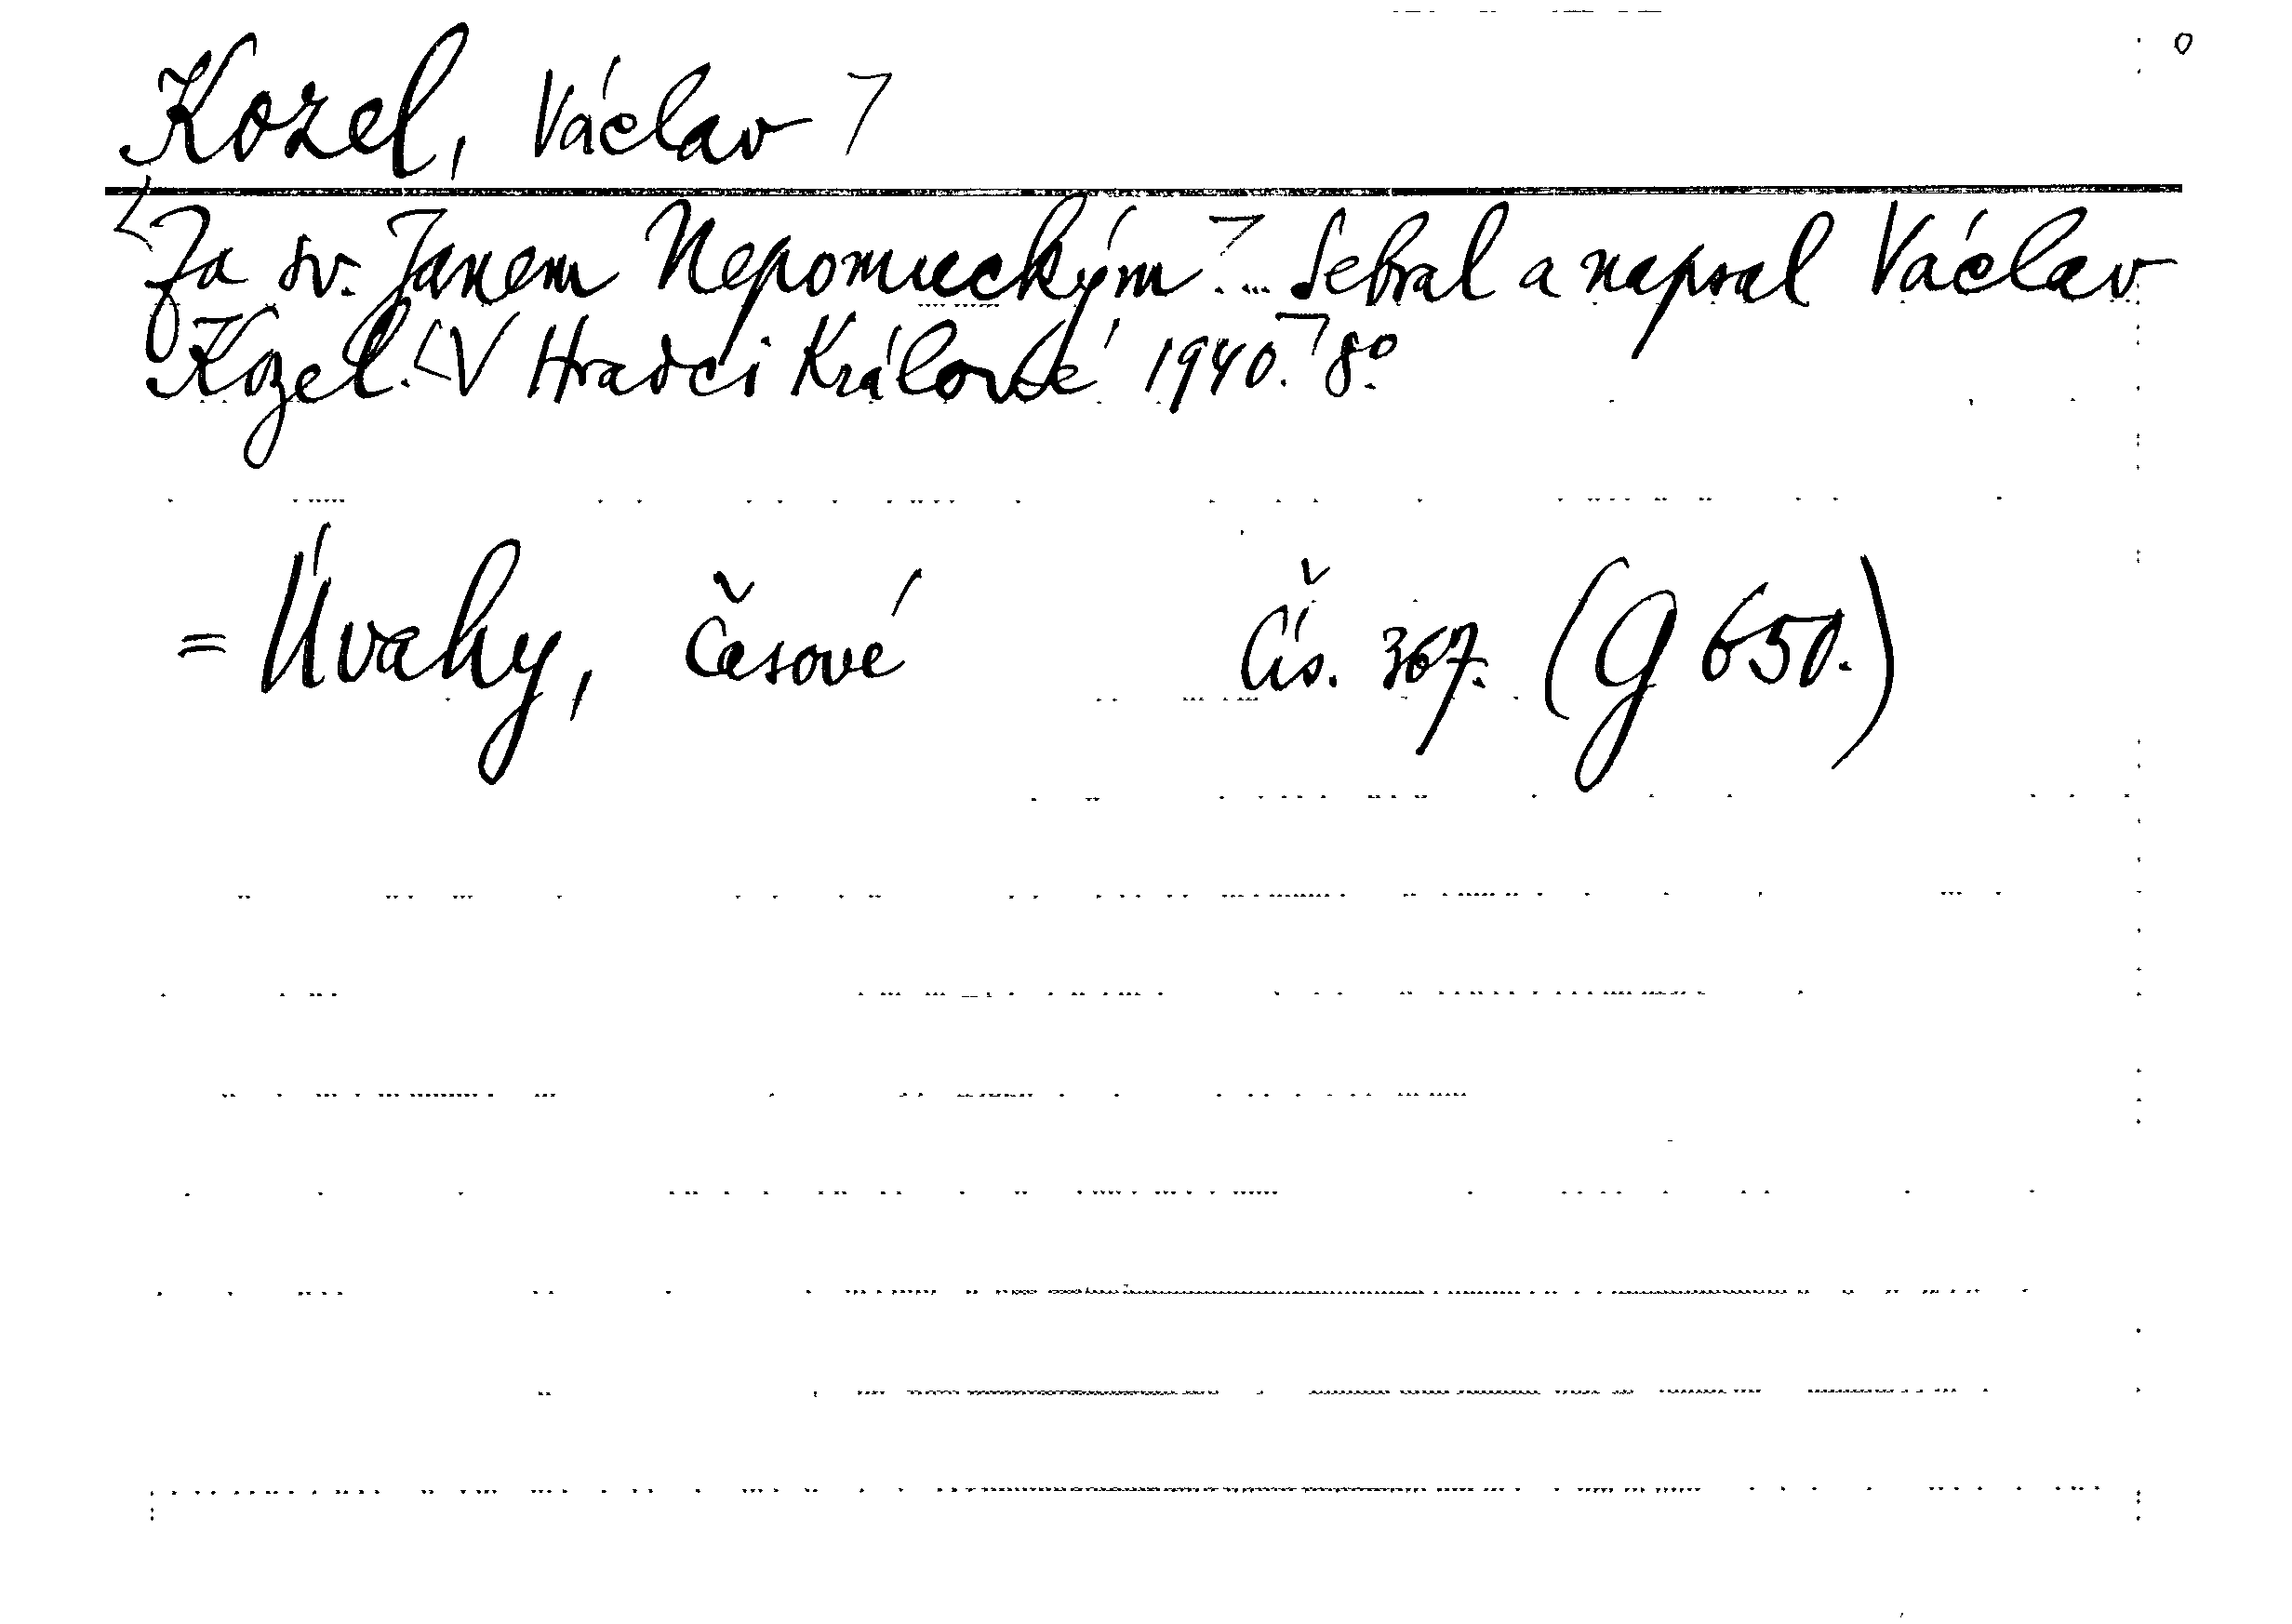 Kozel, Václav
Za sv. Janem Nepomuckým. ... Sebral a napsal Václav
Kozel. V Hradci Králové 1940. 8º
= Úvahy, časové čís. 367. (G 650.)